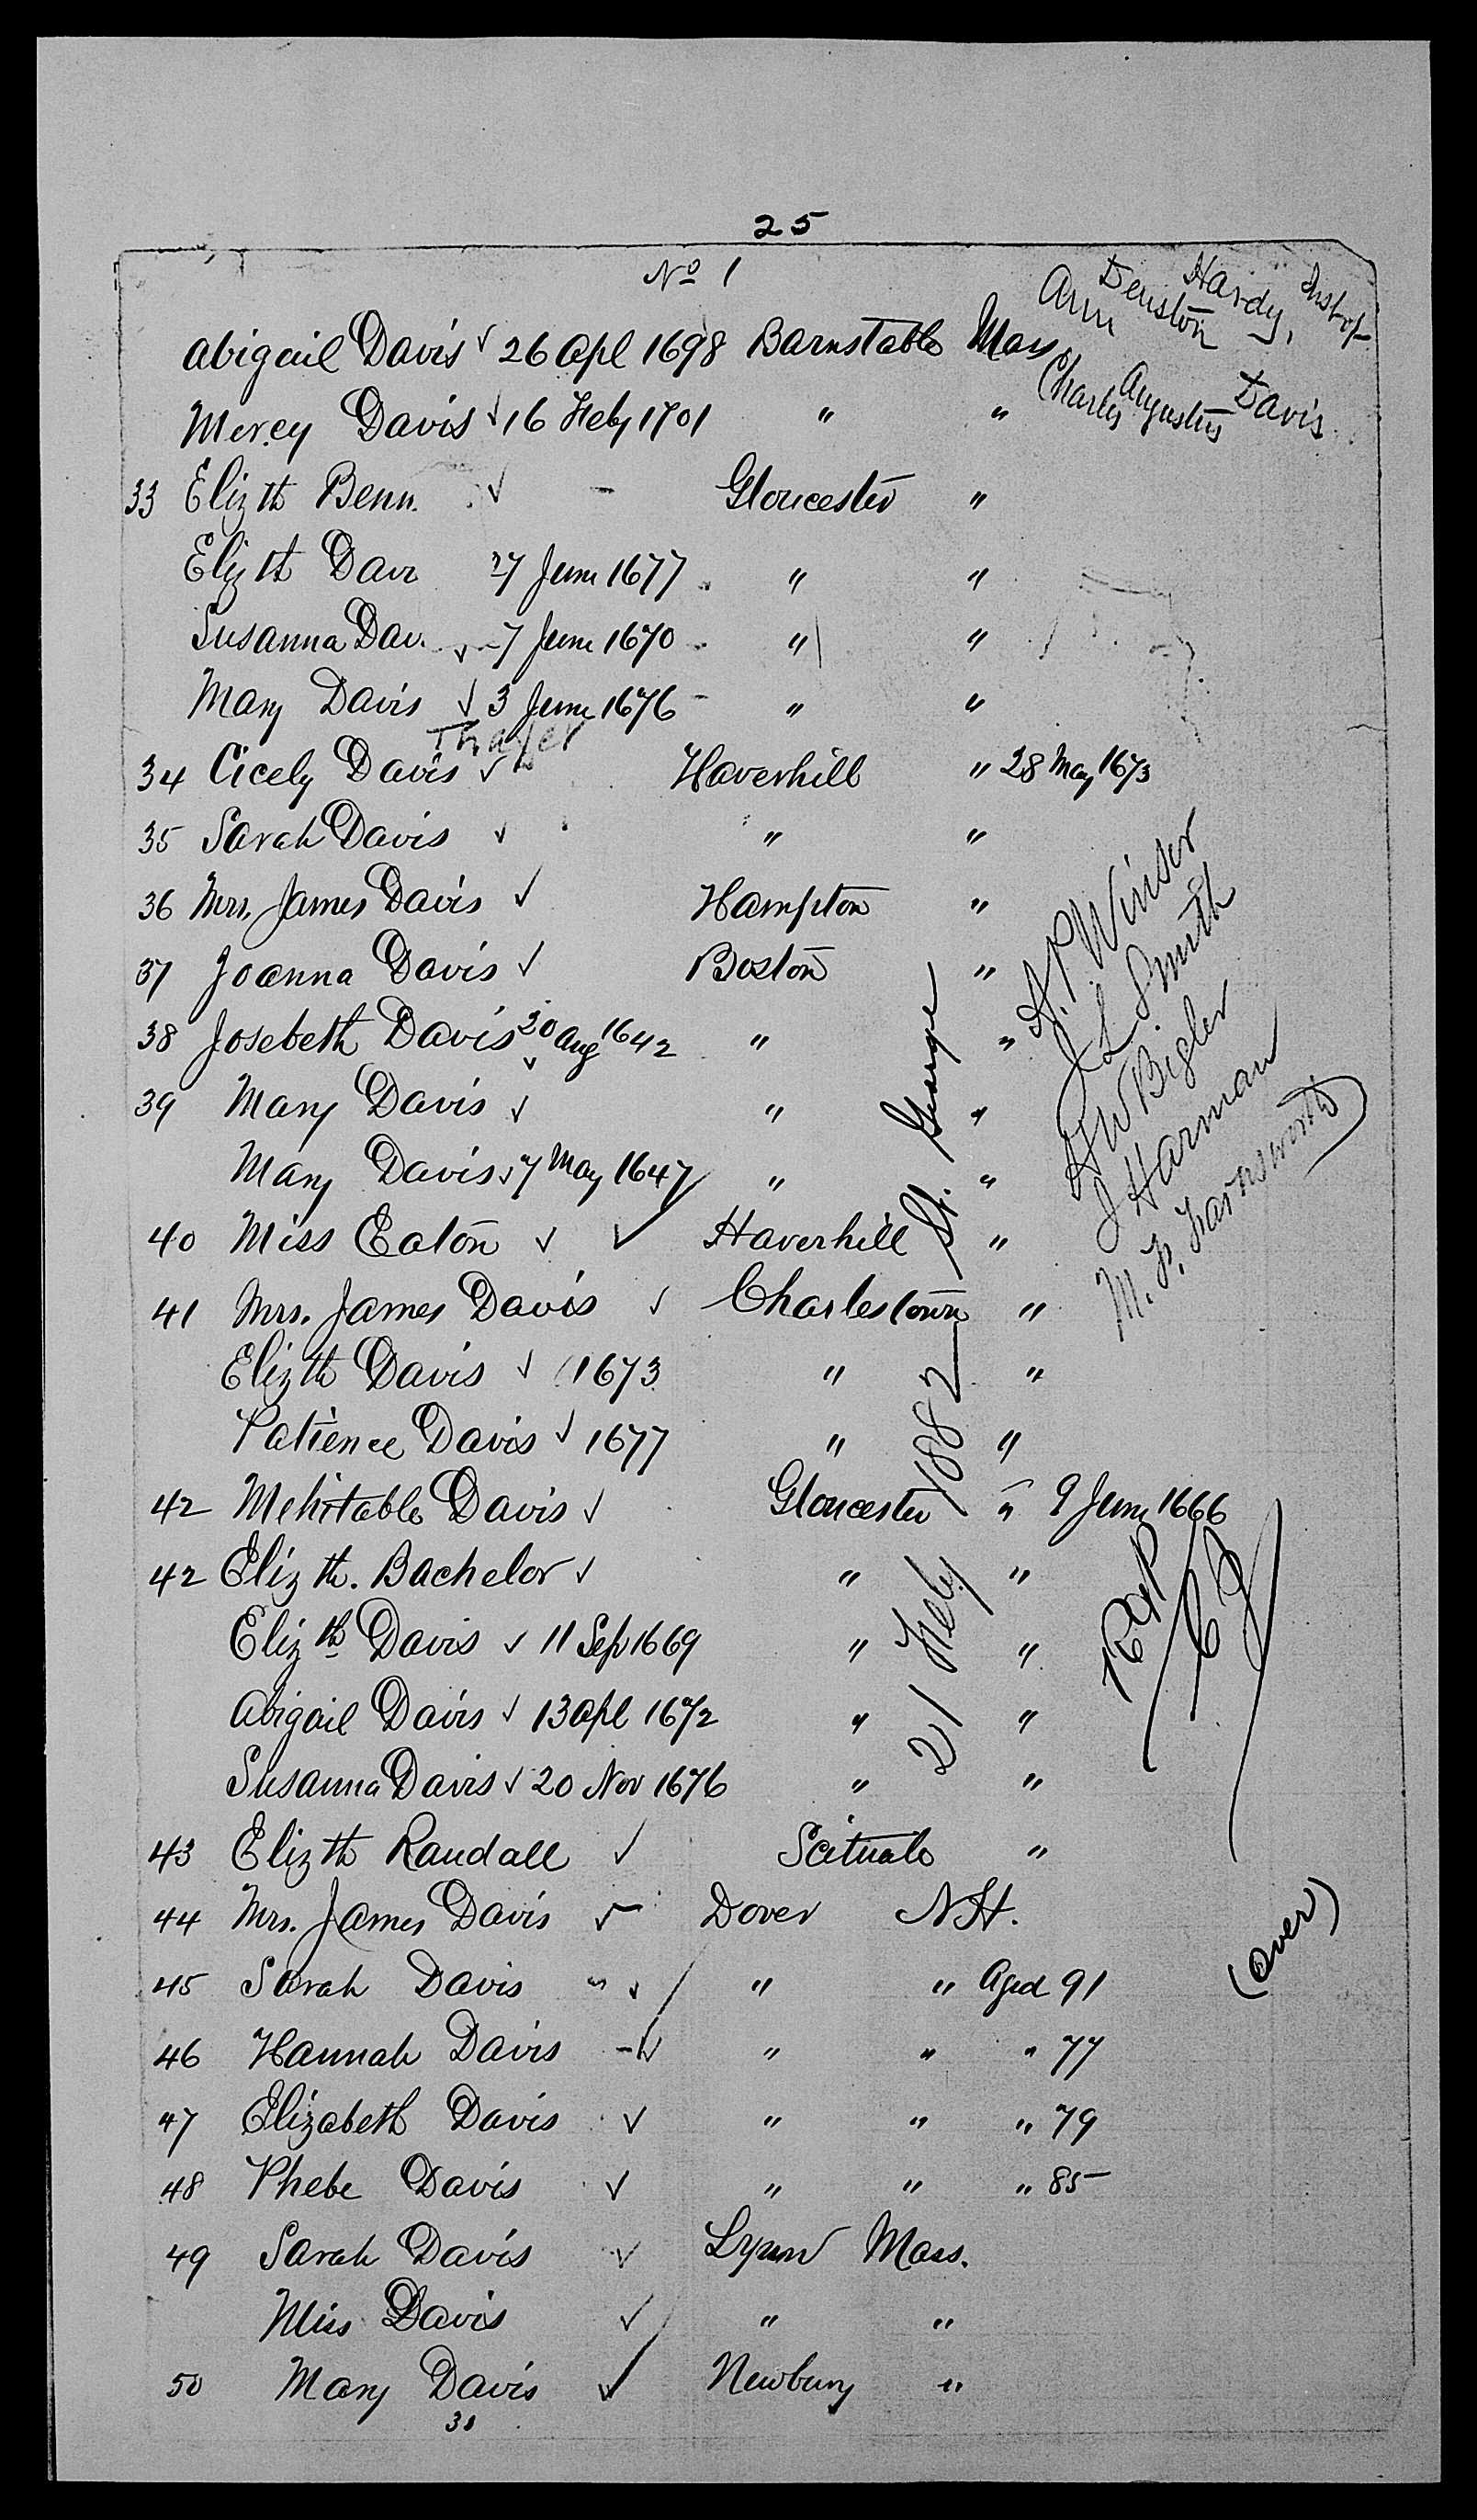 25
No 1
Ann Denston Hardy, Inst of
Charles Augustus Davis
Abigail Davis ✓ 26 Apl 1698 Barnstable Mass
Mercy Davis ✓ 16 Feby 1701 " "
33 Elizth Benn. ✓ - Gloucester "
Elizth Davi 27 June 1677 " "
Susanna Dav. ✓ 7 June 1670 " "
Mary Davis ✓ 3 June 1676 - " "
Thayer
34 Cicely Davis ✓ Haverhill " 28 May 1673
35 Sarah Davis ✓ " "
36 Mrs. James Davis ✓ Hampton "
37 Joanna Davis ✓ Boston "
38 Josebeth Davis 20 Aug 1642 ✓ " "
39 Mary Davis ✓ " "
Mary Davis ✓ 7 May 1647 " "
40 Miss Eaton ✓ ✓ Haverhill "
41 Mrs. James Davis ✓ Charlestown "
Elizth Davis ✓ 1673 " "
Patience Davis ✓ 1677 " "
42 Mehitable Davis ✓ Gloucester " 9 June 1666
42 Elizth. Bachelor ✓ " "
Elizth Davis ✓ 11 Sep 1669 " "
Abigail Davis ✓ 13 Apl 1672 " "
Susanna Davis ✓ 20 Nov 1676 " "
43 Elizth Randall ✓ Scituate "
44 Mrs. James Davis ✓ Dover N.H.
45 Sarah Davis " ✓ " " Aged 91
46 Hannah Davis ✓ " " " 77
47 Elizabeth Davis ✓ " " " 79
48 Phebe Davis ✓ " " " 85
49 Sarah Davis ✓ Lynn Mass.
Miss Davis ✓ " "
50 Mary Davis ✓ Newbury "
21 Feby 1882 St. George
A. P. Winsor
J L Smith
H W Bigler
J Harman
M. F. Farnsworth
(over)